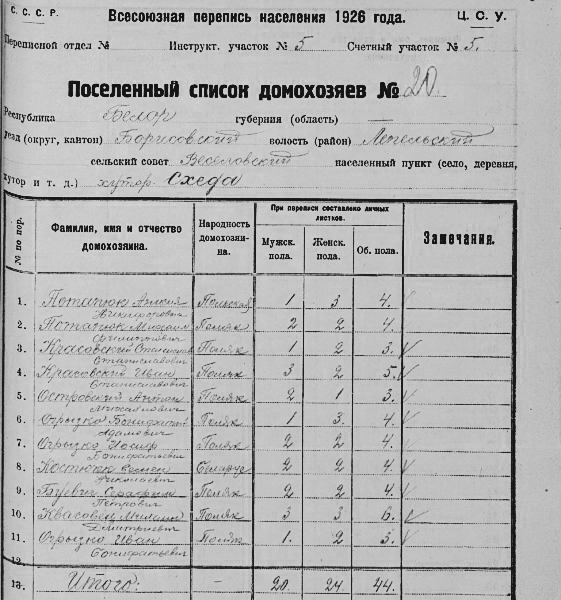 С. С. С. Р. Всесоюзная перепись населения 1926 года. Ц. С. У.
Переписной отдел № Инструкт. участок № 5 Счетный участок № 5.
Поселенный список домохозяев № 20.
Республика Белор губерния (область) —
уезд (округ, кантон) Борисовский волость (район) Лепельский
сельский совет Веселовский населенный пункт (село, деревня,
хутор и т. д.) хутор Схеда
№ по пор. Фамилия, имя и отчество домохозяина. Народность домохозяина. При переписи составлено личных листков. Мужск. пола. Женск. пола. Об. пола. Замечания.
1. Потапюк 1 3 4.
Никифорович
2. Потапюк Михаил Поляк 2 2 4.
3. Красовский Поляк 1 2 3. ✓
Станиславович
4. Красовский Иван Поляк 3 2 5. ✓
Станиславович
5. Островский Антон Поляк 2 1 3. ✓
Михайлович
6. Огрызко Бонифатий Поляк 1 3. 4. ✓
Адамович
7. Огрызко Иосиф Поляк 2 2 4. ✓
Бонифатьевич
8. Костюк Семен 2 2 4 ✓
Николаевич
9. Поляк 2 2 4. ✓
Петрович
10. Квасовец Поляк 3 3 6. ✓
Дмитриевич
11. Огрызко Иван Поляк 1. 2 3. ✓
12. Бонифатьевич
13. Итого: — 20. 24. 44.